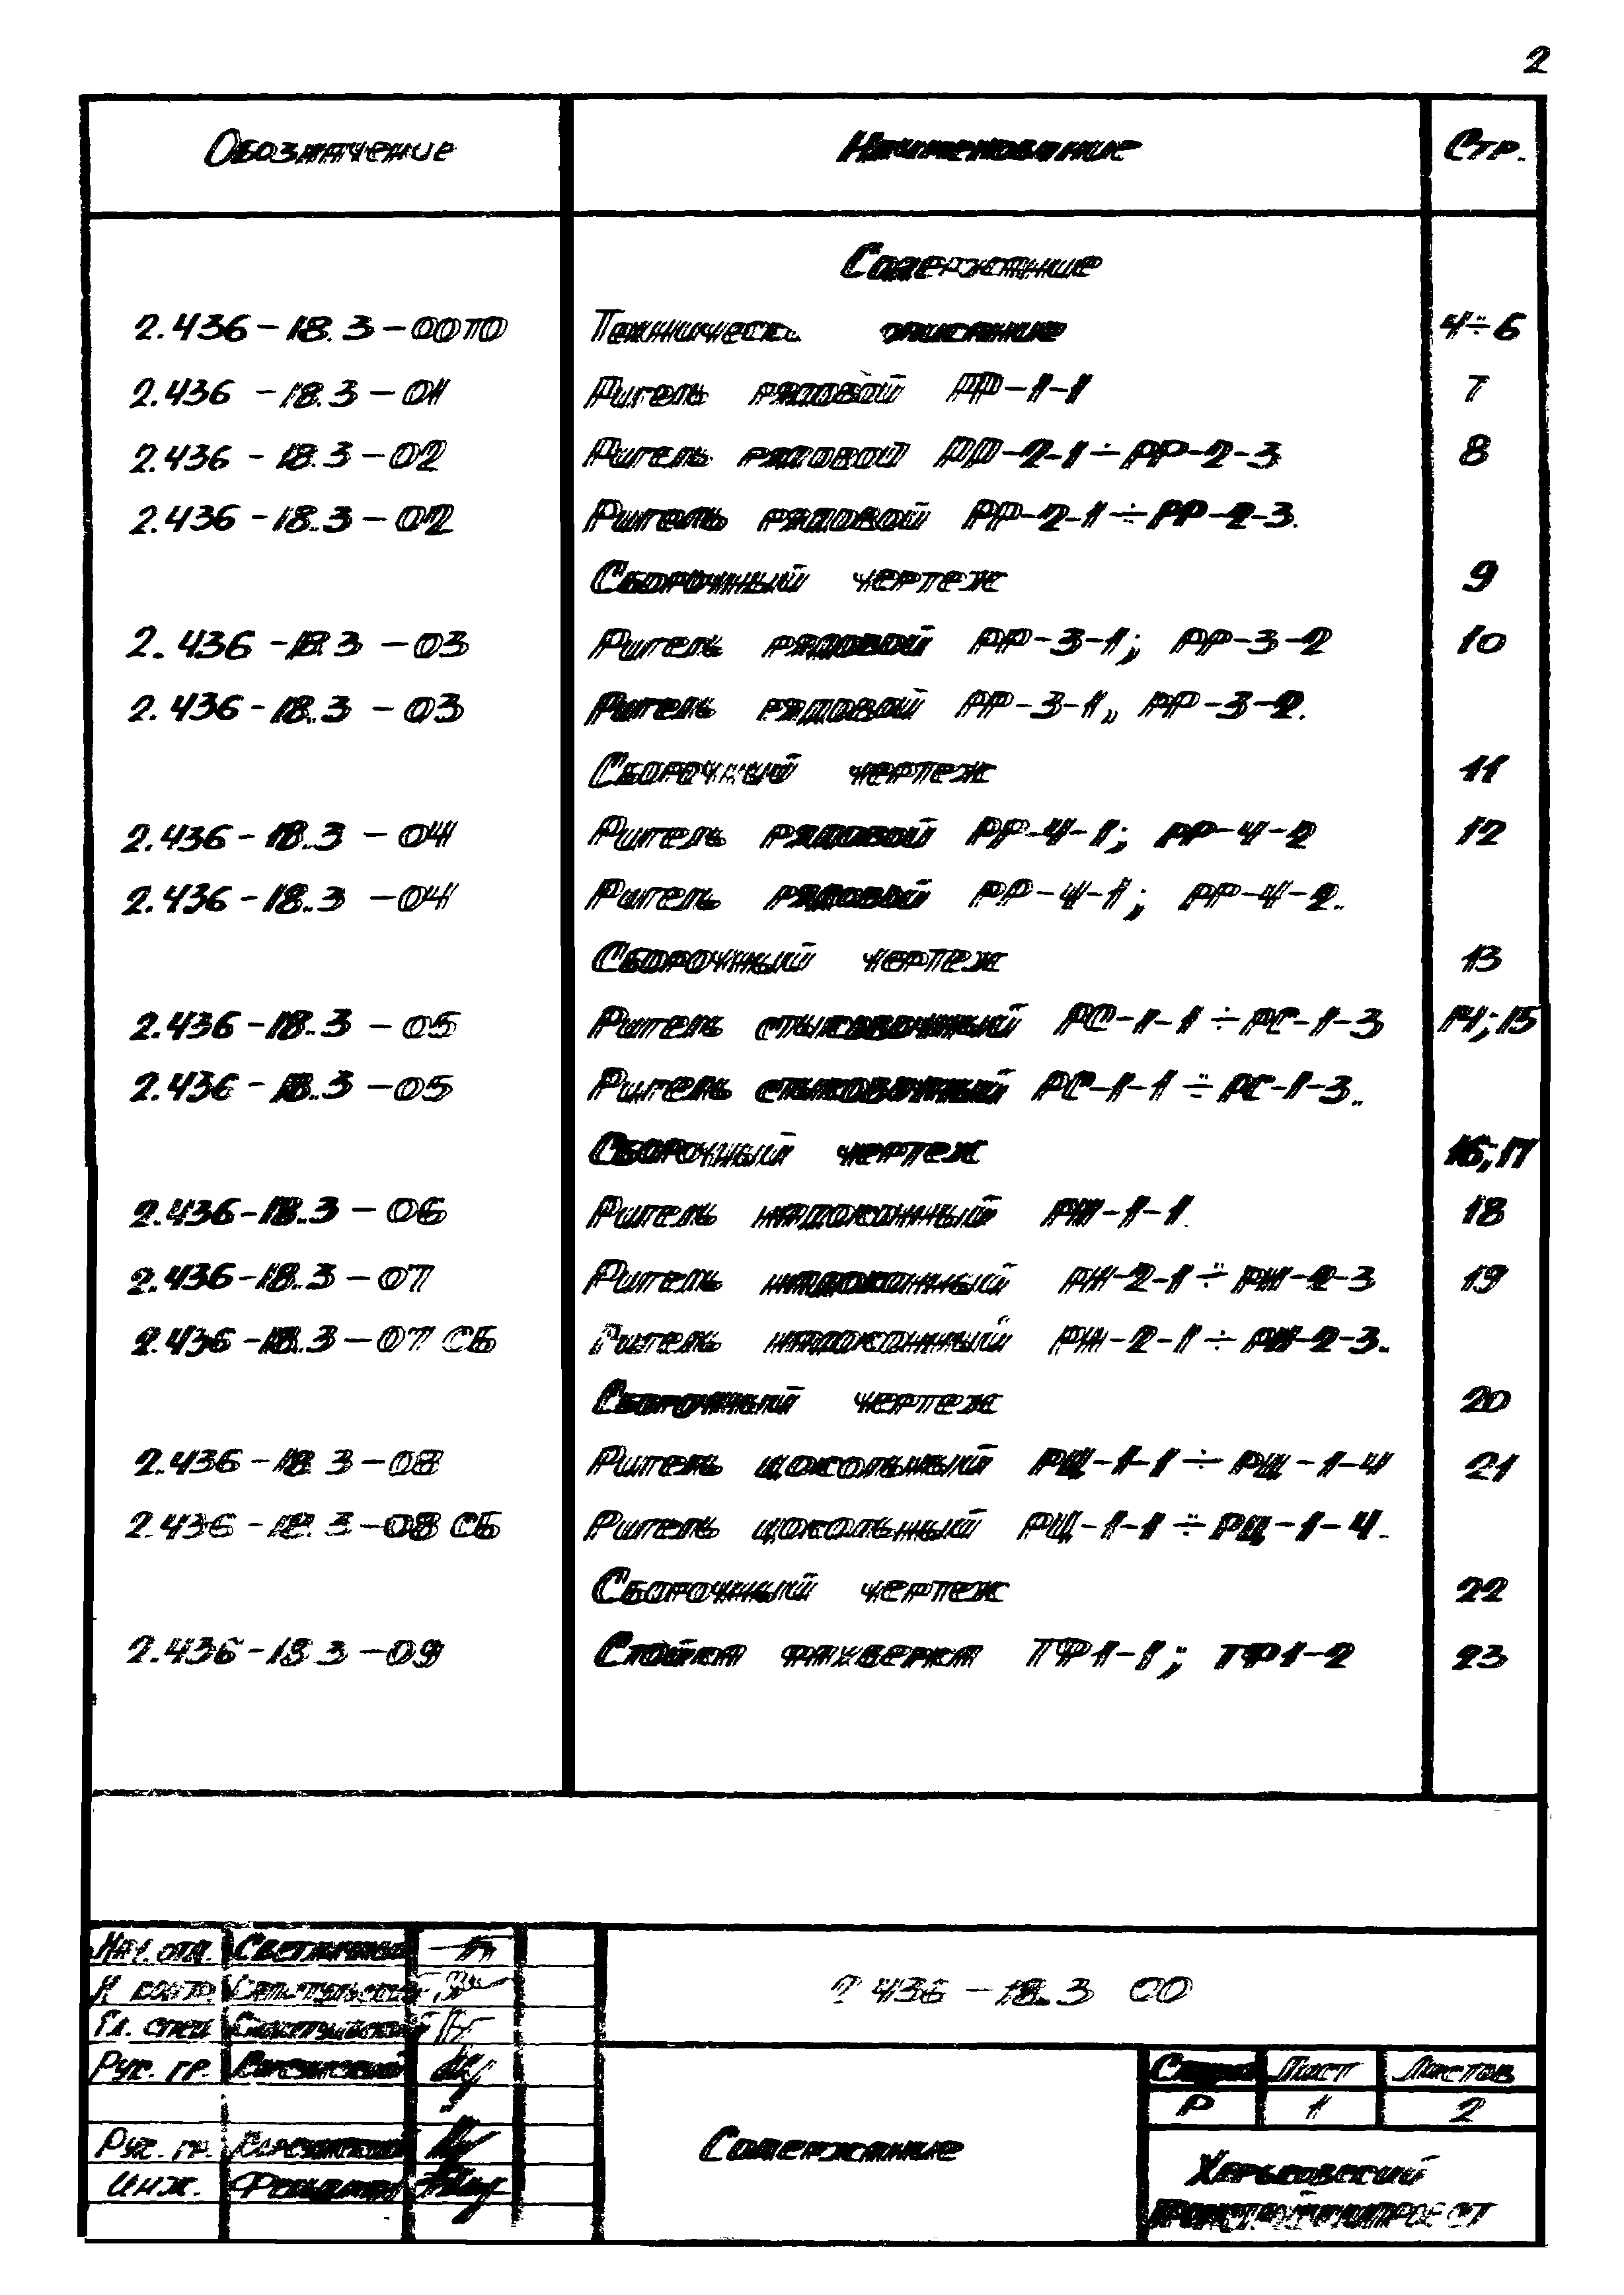 2
Обозначение Наименование Стр.
Содержание
2.436-18.3-00ТО Техническое описание 4÷6
2.436-18.3-01 Ригель рядовой РР-1-1 7
2.436-18.3-02 Ригель рядовой РР-2-1÷РР-2-3 8
2.436-18.3-02 Ригель рядовой РР-2-1÷РР-2-3.
Сборочный чертеж 9
2.436-18.3-03 Ригель рядовой РР-3-1; РР-3-2 10
2.436-18.3-03 Ригель рядовой РР-3-1, РР-3-2.
Сборочный чертеж 11
2.436-18.3-04 Ригель рядовой РР-4-1; РР-4-2 12
2.436-18.3-04 Ригель рядовой РР-4-1; РР-4-2.
Сборочный чертеж 13
2.436-18.3-05 Ригель стыковочный РС-1-1÷РС-1-3 14;15
2.436-18.3-05 Ригель стыковочный РС-1-1÷РС-1-3.
Сборочный чертеж 16;17
2.436-18.3-06 Ригель надоконный РН-1-1 18
2.436-18.3-07 Ригель надоконный РН-2-1÷РН-2-3 19
2.436-18.3-07 СБ Ригель надоконный РН-2-1÷РН-2-3.
Сборочный чертеж 20
2.436-18.3-08 Ригель цокольный РЦ-1-1÷РЦ-1-4 21
2.436-18.3-08 СБ Ригель цокольный РЦ-1-1÷РЦ-1-4.
Сборочный чертеж 22
2.436-18.3-09 Стойка фахверка ТФ1-1; ТФ1-2 23
Нач. отд.
Н. контр.
Гл. спец
Рук. гр.
Рук. гр.
Инж.
2.436-18.3 00
Содержание
Стадия Лист Листов
Р 1 2
Харьковский
ПРОМСТРОЙНИИПРОЕКТ